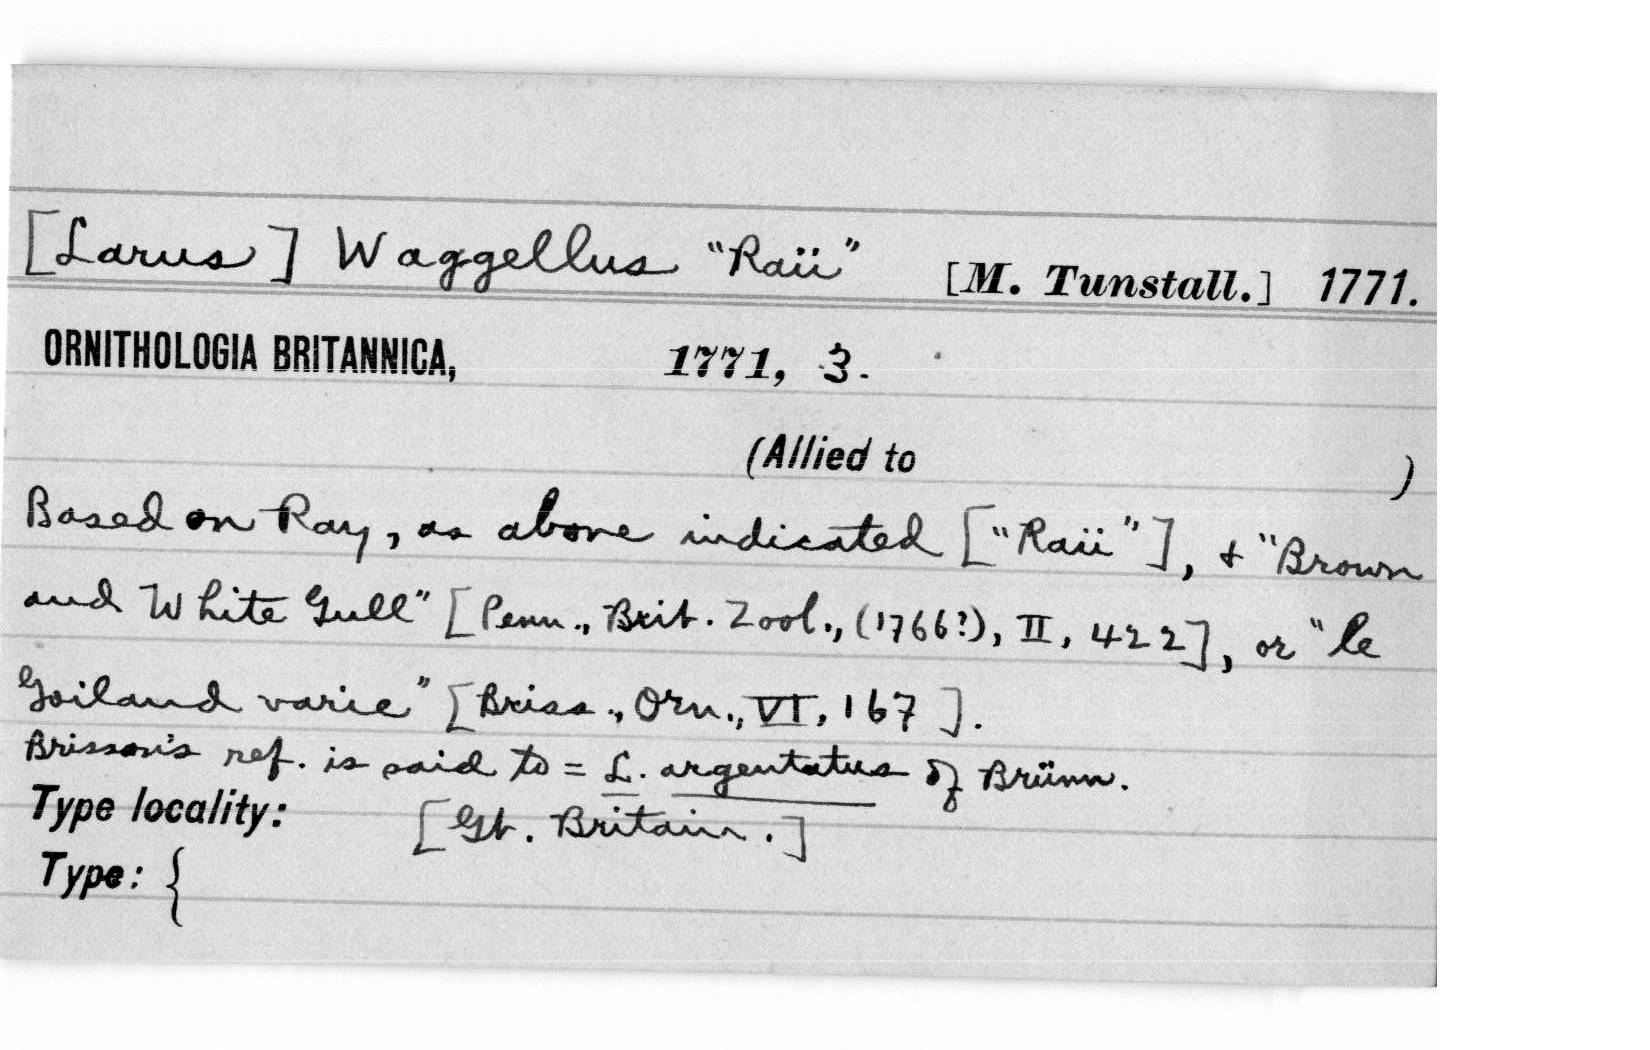 [Larus] Waggellus "Raii" [M. Tunstall.] 1771.
ORNITHOLOGIA BRITANNICA, 1771, 3.
(Allied to )
Based on Ray, as above indicated ["Raii"], & "Brown
and White Gull" [Penn., Brit. Zool., (1766?), II, 422], or "le
Goiland varie" [Briss., Orn., VI, 167].
Brisson's ref. is said to = L. argentatus of Brünn.
Type locality: [Gt. Britain.]
Type: {